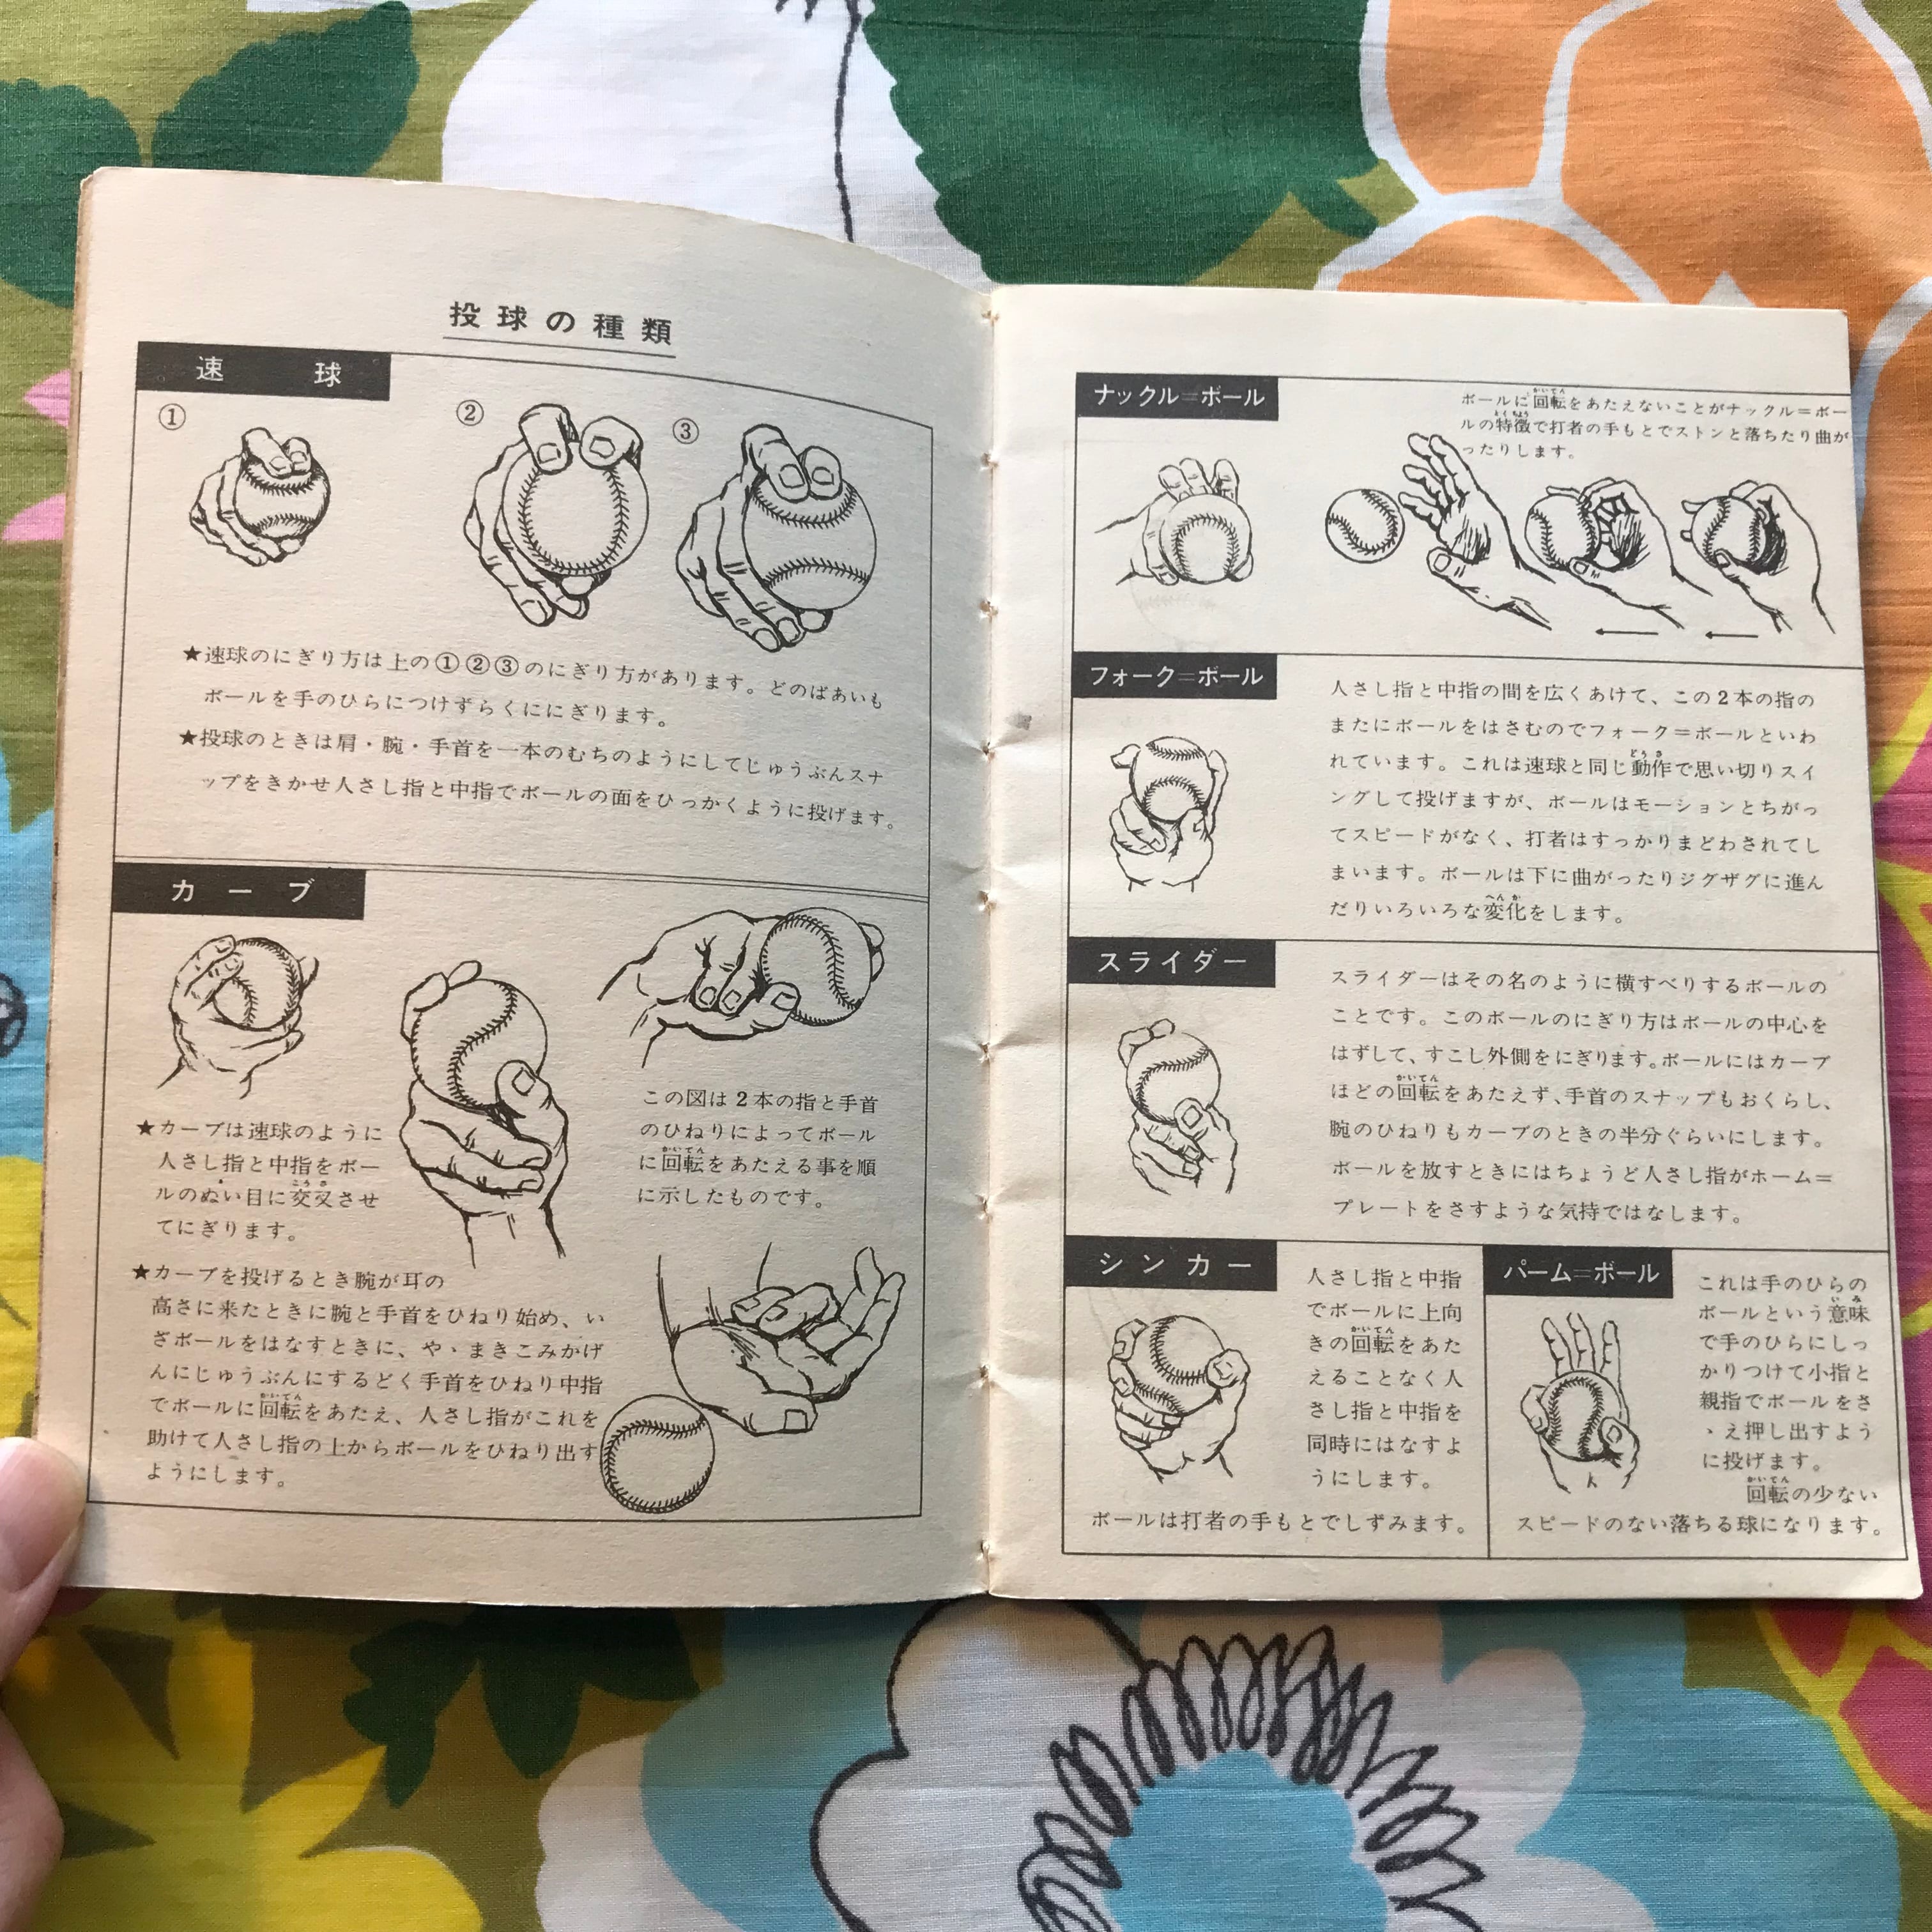 投球の種類
速球
① ② ③
★速球のにぎり方は上の①②③のにぎり方があります。どのばあいも
ボールを手のひらにつけずらくににぎります。
★投球のときは肩・腕・手首を一本のむちのようにしてじゅうぶんスナ
ップをきかせ人さし指と中指でボールの面をひっかくように投げます。
カーブ
★カーブは速球のように
人さし指と中指をボー
ルのぬい目に変叉させ
てにぎります。
この図は2本の指と手首
のひねりによってボール
に回転をあたえる事を順
に示したものです。
★カーブを投げるとき腕が耳の
高さに来たときに腕と手首をひねり始め、い
ざボールをはなすときに、やゝまきこみかげ
んにじゅうぶんにするどく手首をひねり中指
でボールに回転をあたえ、人さし指がこれを
助けて人さし指の上からボールをひねり出す
ようにします。
ナックル=ボール
ボールに回転をあたえないことがナックル=ボー
ルの特徴で打者の手もとでストンと落ちたり曲が
ったりします。
フォーク=ボール
人さし指と中指の間を広くあけて、この2本の指の
またにボールをはさむのでフォーク=ボールといわ
れています。これは速球と同じ動作で思い切りスイ
ングして投げますが、ボールはモーションとちがっ
てスピードがなく、打者はすっかりまどわされてし
まいます。ボールは下に曲がったりジグザグに進ん
だりいろいろな変化をします。
スライダー
スライダーはその名のように横すべりするボールの
ことです。このボールのにぎり方はボールの中心を
はずして、すこし外側をにぎります。ボールにはカーブ
ほどの回転をあたえず、手首のスナップもおくらし、
腕のひねりもカーブのときの半分ぐらいにします。
ボールを放すときにはちょうど人さし指がホーム=
プレートをさすような気持ではなします。
シンカー
人さし指と中指
でボールに上向
きの回転をあた
えることなく人
さし指と中指を
同時にはなすよ
うにします。
ボールは打者の手もとでしずみます。
パーム=ボール
これは手のひらの
ボールという意味
で手のひらにしっ
かりつけて小指と
親指でボールをさ
ゝえ押し出すよう
に投げます。
回転の少ない
スピードのない落ちる球になります。